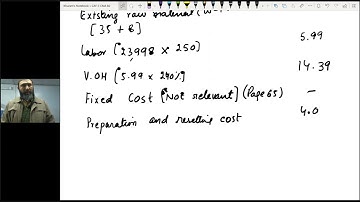 Existing raw material (W-
[35 + 6]
Labor [23998 × 250] 5.99
V.OH [5.99 × 240%] 14.39
Fixed Cost [Not relevant] (Page 65) –
Preparation and resetting cost 4.0